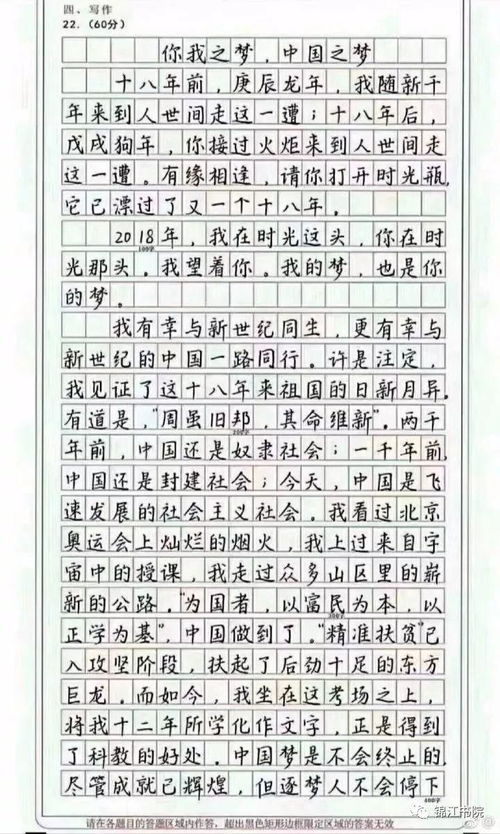 四、写作
22.（60分）
你我之梦，中国之梦
十八年前，庚辰龙年，我随新千
年来到人世间走这一遭；十八年后，
戊戌狗年，你接过火炬来到人世间走
这一遭。有缘相逢，请你打开时光瓶，
它已漂过了又一个十八年。
2018年，我在时光这头，你在时
100字
光那头。我望着你。我的梦，也是你
的梦。
我有幸与新世纪同生，更有幸与
新世纪的中国一路同行。许是注定，
我见证了这十八年来祖国的日新月异。
有道是，"周虽旧邦，其命维新"。两千
200字
年前，中国还是奴隶社会；一千年前，
中国还是封建社会；今天，中国是飞
速发展的社会主义社会。我看过北京
奥运会上灿烂的烟火，我上过来自宇
宙中的授课，我走过众多山区里的崭
新的公路。"为国者，以富民为本，以
300字
正学为基"，中国做到了。"精准扶贫"已
入攻坚阶段，扶起了后劲十足的东方
巨龙。而如今，我坐在这考场之上，
将我十二年所学化作文字，正是得到
了科教的好处。中国梦是不会终止的，
尽管成就已辉煌，但逐梦人不会停下
400字
请在各题目的答题区域内作答，超出黑色矩形边框限定区域的答案无效
锦江书院